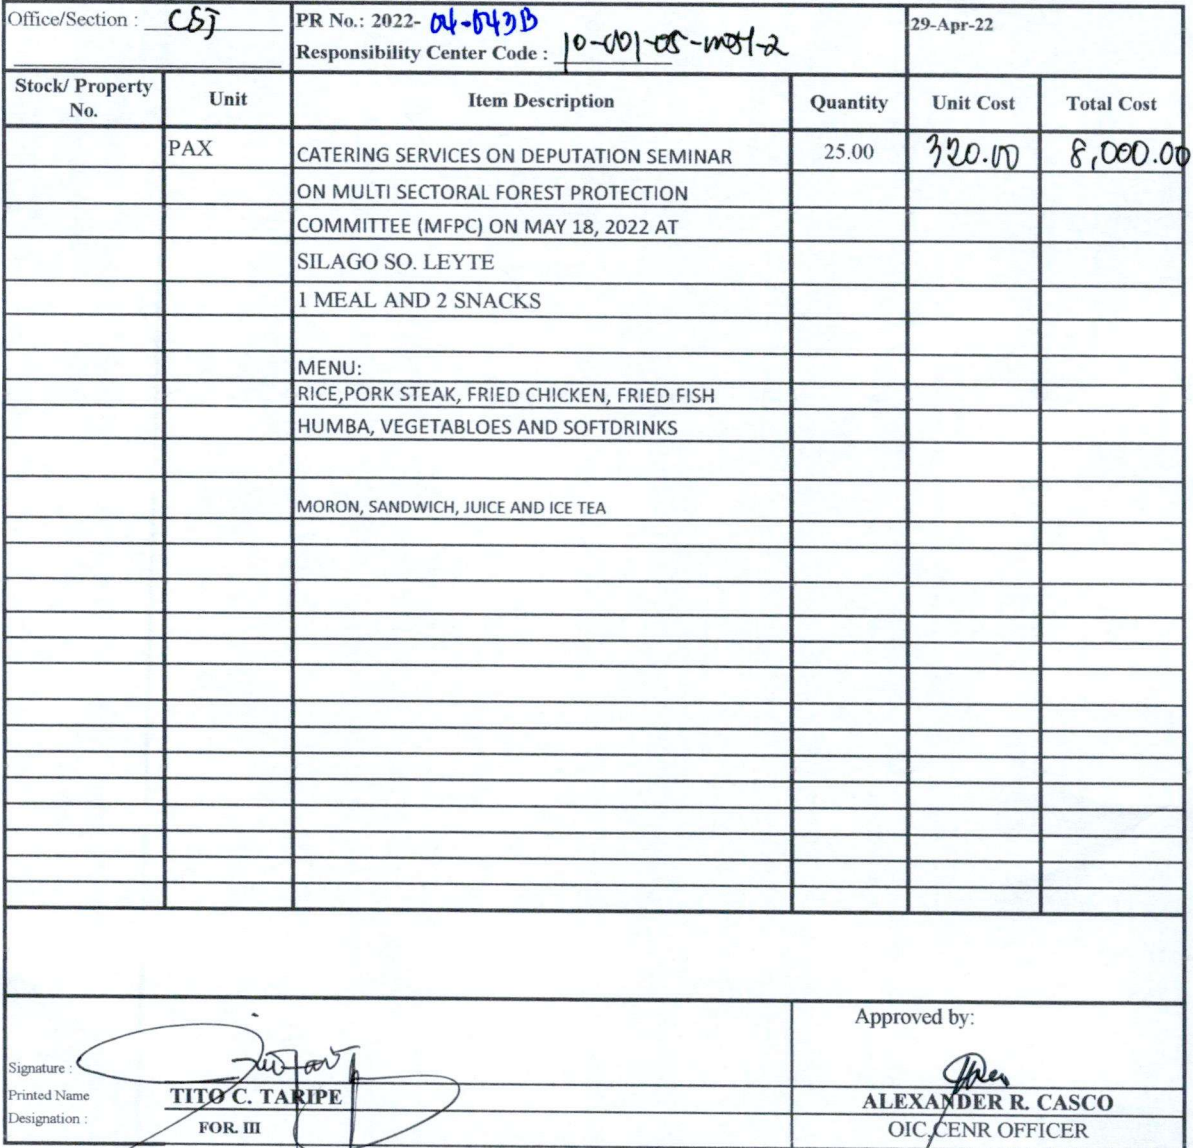 Office/Section : CSJ
PR No.: 2022- 04-043B
29-Apr-22
Responsibility Center Code :
Stock/ Property No.
Unit
Item Description
Quantity
Unit Cost
Total Cost
PAX
CATERING SERVICES ON DEPUTATION SEMINAR
25.00
320.00
8,000.00
ON MULTI SECTORAL FOREST PROTECTION
COMMITTEE (MFPC) ON MAY 18, 2022 AT
SILAGO SO. LEYTE
1 MEAL AND 2 SNACKS
MENU:
RICE,PORK STEAK, FRIED CHICKEN, FRIED FISH
HUMBA, VEGETABLOES AND SOFTDRINKS
MORON, SANDWICH, JUICE AND ICE TEA
Approved by:
Signature :
Printed Name
TITO C. TARIPE
ALEXANDER R. CASCO
Designation :
FOR. III
OIC,CENR OFFICER